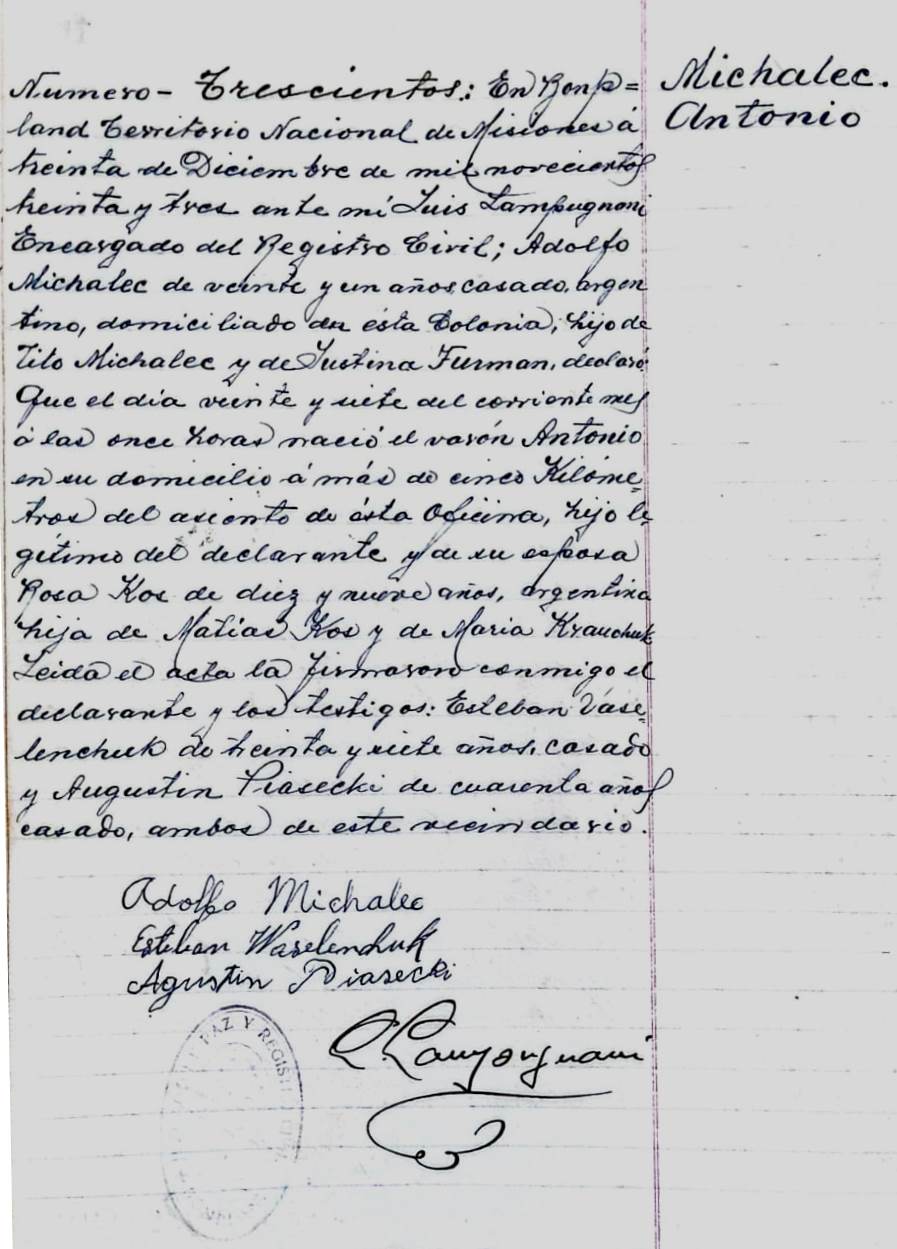 Numero - Trescientos: En Bonp=
land Territorio Nacional de Misiones á
treinta de Diciembre de mil novecientos
treinta y tres ante mí Luis Lampugnani
Encargado del Registro Civil; Adolfo
Michalec de veinte y un años, casado, argen
tino, domiciliado en ésta Colonia, hijo de
Tito Michalec y de Justina Furman, declaró
Que el día veinte y siete del corriente mes
á las once horas nació el varón Antonio
en su domicilio á más de cinco Kilóme=
tros del asiento de ésta Oficina, hijo le=
gítimo del declarante y de su esposa
Rosa Kos de diez y nueve años, argentina
hija de Matías Kos y de Maria Krauchuk
Leida el acta la firmaron conmigo el
declarante y los testigos: Esteban Vase=
lenchuk de treinta y siete años, casado
y Augustin Piasecki de cuarenta años
casado, ambos de este vecindario.
Michalec.
Antonio
Adolfo Michalec
Esteban Waselenchuk
Agustin Piasecki
L Lampugnani
PAZ Y REGIST